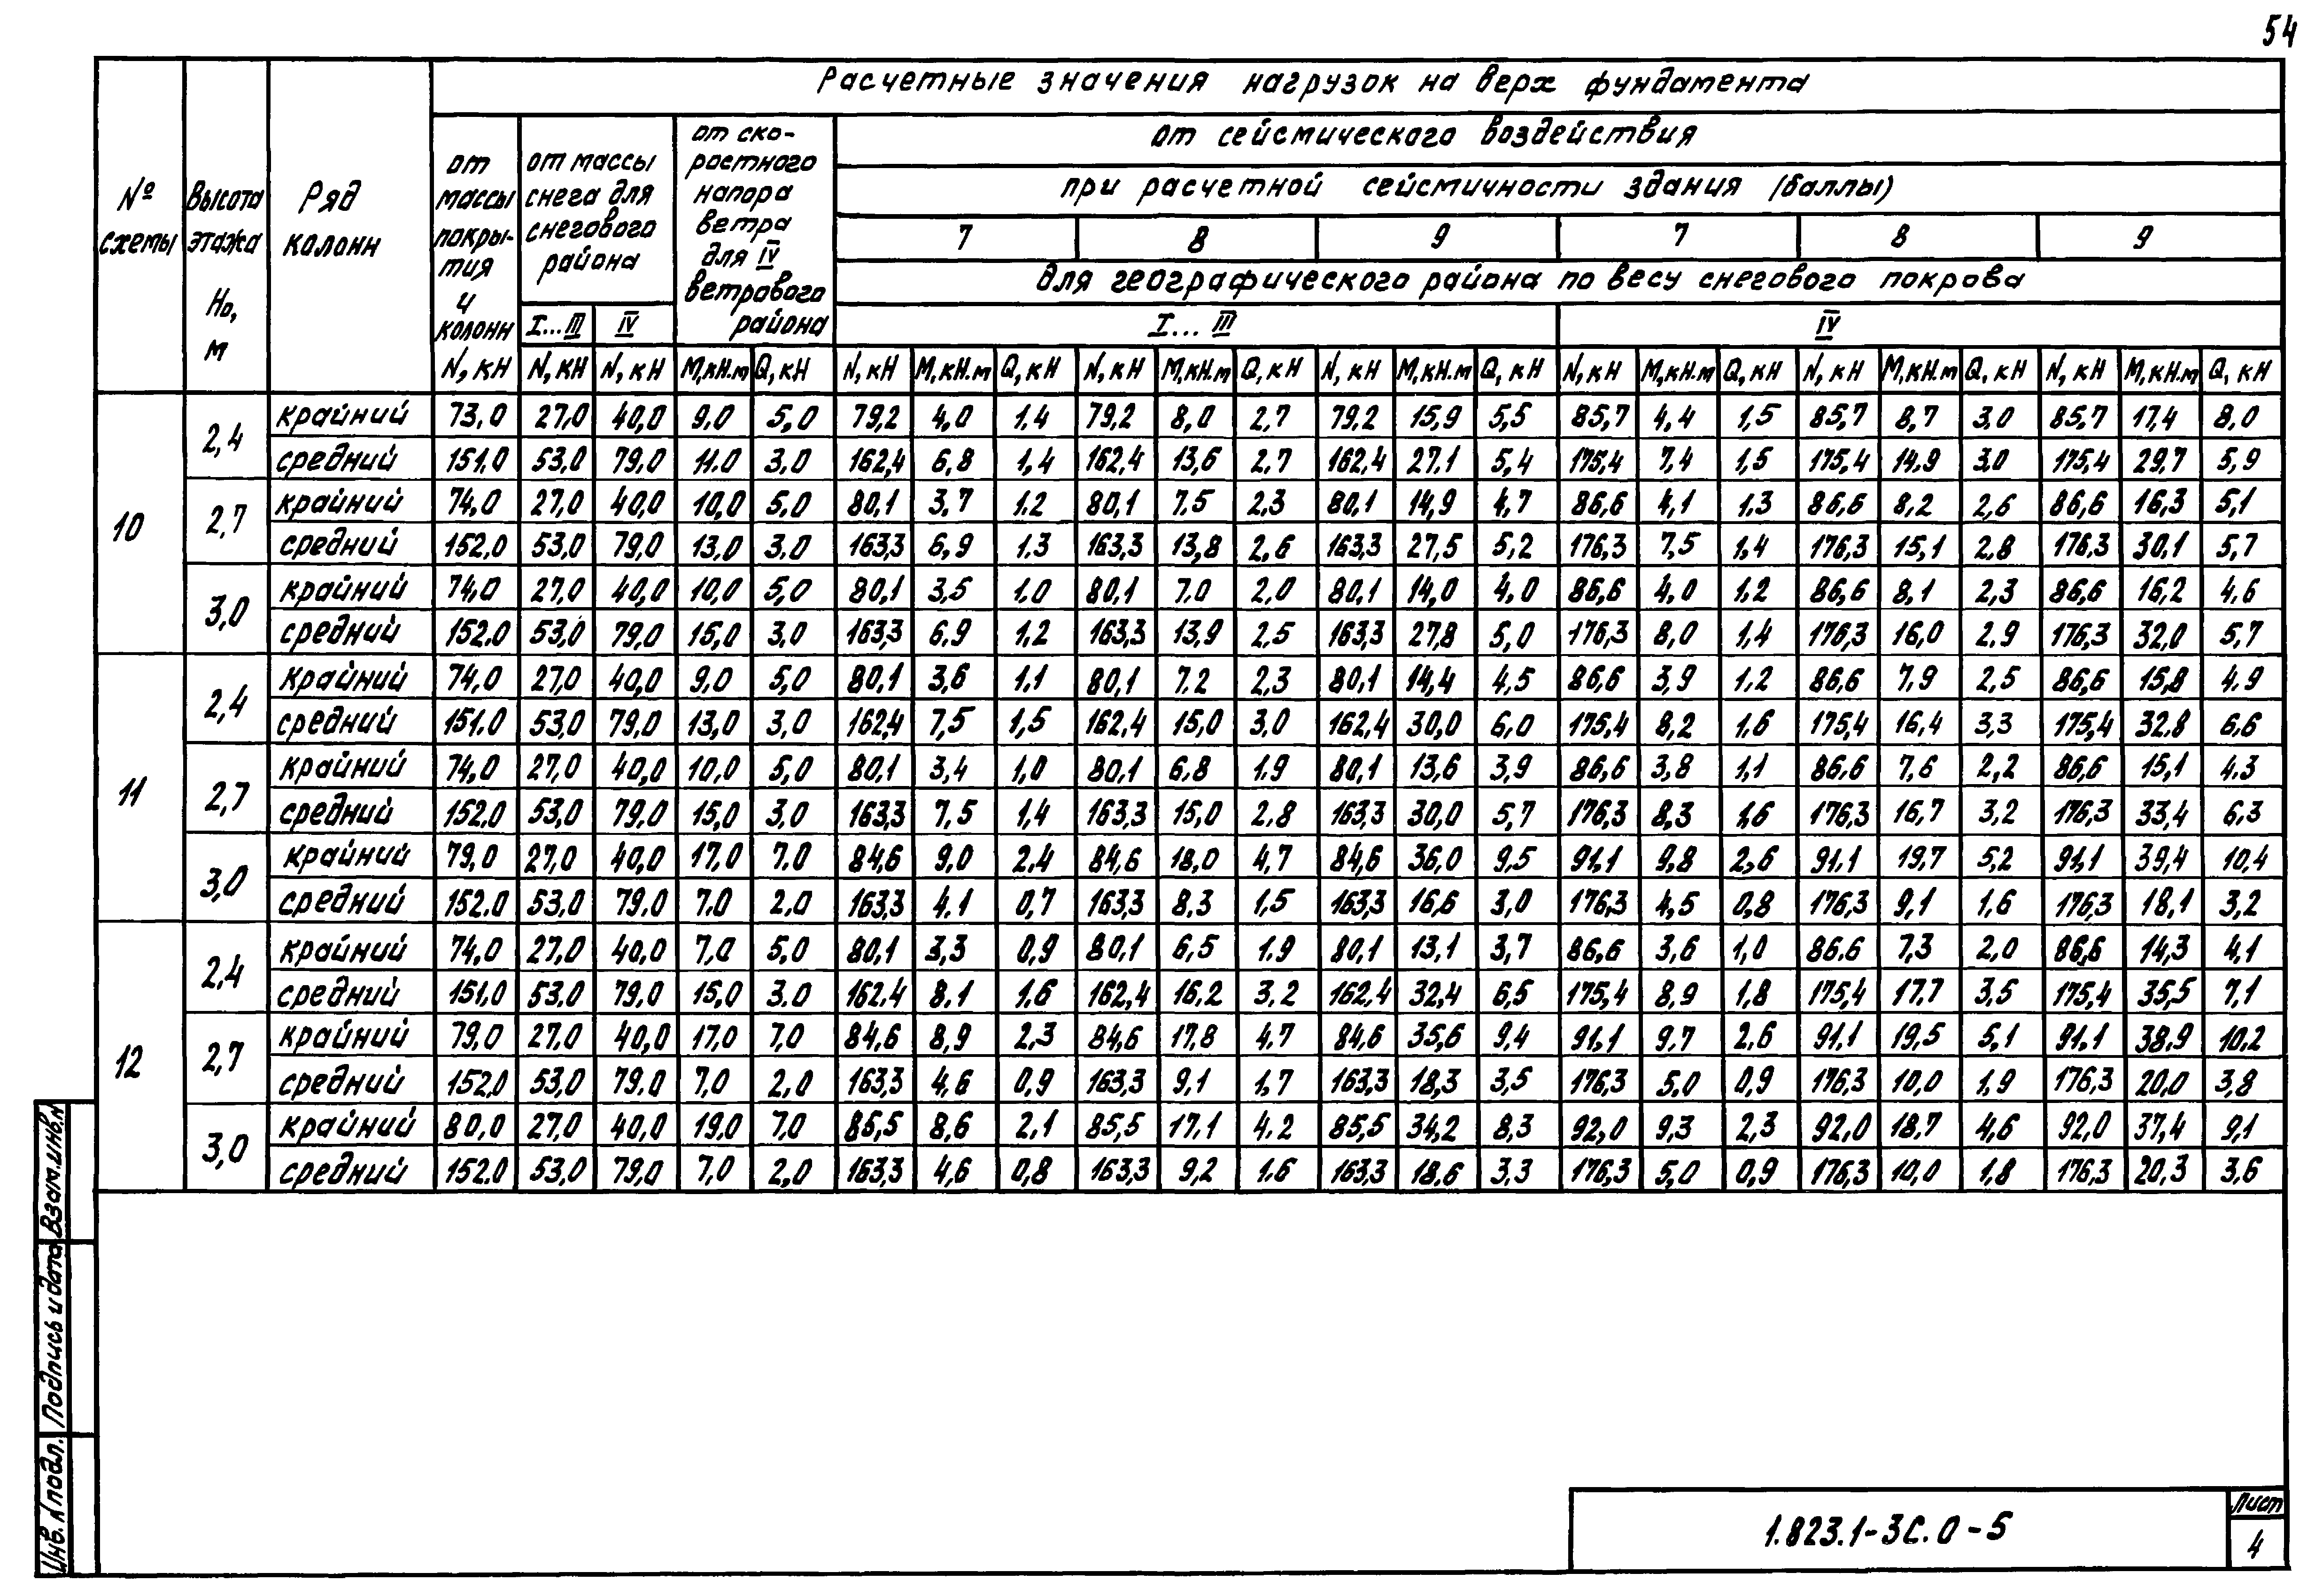 54
Расчетные значения нагрузок на верх фундамента
№ схемы
Высота этажа Но, м
Ряд колонн
от массы покры- тия и колонн
от массы снега для снегового района
от ско- ростного напора ветра для IV ветрового района
от сейсмического воздействия
при расчетной сейсмичности здания (баллы)
7 8 9 7 8 9
для географического района по весу снегового покрова
I...III IV I...III IV
N, кН N, кН N, кН М, кН.м Q, кН N, кН М, кН.м Q, кН N, кН М, кН.м Q, кН N, кН М, кН.м Q, кН N, кН М, кН.м Q, кН N, кН М, кН.м Q, кН N, кН М, кН.м Q, кН
10
2,4 крайний 73,0 27,0 40,0 9,0 5,0 79,2 4,0 1,4 79,2 8,0 2,7 79,2 15,9 5,5 85,7 4,4 1,5 85,7 8,7 3,0 85,7 17,4 8,0
средний 151,0 53,0 79,0 11,0 3,0 162,4 6,8 1,4 162,4 13,6 2,7 162,4 27,1 5,4 175,4 7,4 1,5 175,4 14,9 3,0 175,4 29,7 5,9
2,7 крайний 74,0 27,0 40,0 10,0 5,0 80,1 3,7 1,2 80,1 7,5 2,3 80,1 14,9 4,7 86,6 4,1 1,3 86,6 8,2 2,6 86,6 16,3 5,1
средний 152,0 53,0 79,0 13,0 3,0 163,3 6,9 1,3 163,3 13,8 2,6 163,3 27,5 5,2 176,3 7,5 1,4 176,3 15,1 2,8 176,3 30,1 5,7
3,0 крайний 74,0 27,0 40,0 10,0 5,0 80,1 3,5 1,0 80,1 7,0 2,0 80,1 14,0 4,0 86,6 4,0 1,2 86,6 8,1 2,3 86,6 16,2 4,6
средний 152,0 53,0 79,0 15,0 3,0 163,3 6,9 1,2 163,3 13,9 2,5 163,3 27,8 5,0 176,3 8,0 1,4 176,3 16,0 2,9 176,3 32,0 5,7
11
2,4 крайний 74,0 27,0 40,0 9,0 5,0 80,1 3,6 1,1 80,1 7,2 2,3 80,1 14,4 4,5 86,6 3,9 1,2 86,6 7,9 2,5 86,6 15,8 4,9
средний 151,0 53,0 79,0 13,0 3,0 162,4 7,5 1,5 162,4 15,0 3,0 162,4 30,0 6,0 175,4 8,2 1,6 175,4 16,4 3,3 175,4 32,8 6,6
2,7 крайний 74,0 27,0 40,0 10,0 5,0 80,1 3,4 1,0 80,1 6,8 1,9 80,1 13,6 3,9 86,6 3,8 1,1 86,6 7,6 2,2 86,6 15,1 4,3
средний 152,0 53,0 79,0 15,0 3,0 163,3 7,5 1,4 163,3 15,0 2,8 163,3 30,0 5,7 176,3 8,3 1,6 176,3 16,7 3,2 176,3 33,4 6,3
3,0 крайний 79,0 27,0 40,0 17,0 7,0 84,6 9,0 2,4 84,6 18,0 4,7 84,6 36,0 9,5 91,1 9,8 2,6 91,1 19,7 5,2 91,1 39,4 10,4
средний 152,0 53,0 79,0 7,0 2,0 163,3 4,1 0,7 163,3 8,3 1,5 163,3 16,6 3,0 176,3 4,5 0,8 176,3 9,1 1,6 176,3 18,1 3,2
12
2,4 крайний 74,0 27,0 40,0 7,0 5,0 80,1 3,3 0,9 80,1 6,5 1,9 80,1 13,1 3,7 86,6 3,6 1,0 86,6 7,3 2,0 86,6 14,3 4,1
средний 151,0 53,0 79,0 15,0 3,0 162,4 8,1 1,6 162,4 16,2 3,2 162,4 32,4 6,5 175,4 8,9 1,8 175,4 17,7 3,5 175,4 35,5 7,1
2,7 крайний 79,0 27,0 40,0 17,0 7,0 84,6 8,9 2,3 84,6 17,8 4,7 84,6 35,6 9,4 91,1 9,7 2,6 91,1 19,5 5,1 91,1 38,9 10,2
средний 152,0 53,0 79,0 7,0 2,0 163,3 4,6 0,9 163,3 9,1 1,7 163,3 18,3 3,5 176,3 5,0 0,9 176,3 10,0 1,9 176,3 20,0 3,8
3,0 крайний 80,0 27,0 40,0 19,0 7,0 85,5 8,6 2,1 85,5 17,1 4,2 85,5 34,2 8,3 92,0 9,3 2,3 92,0 18,7 4,6 92,0 37,4 9,1
средний 152,0 53,0 79,0 7,0 2,0 163,3 4,6 0,8 163,3 9,2 1,6 163,3 18,6 3,3 176,3 5,0 0,9 176,3 10,0 1,8 176,3 20,3 3,6
Взам.инв.N
Подпись и дата
Инв. N подл.
1.823.1-3С.0-5
Лист
4